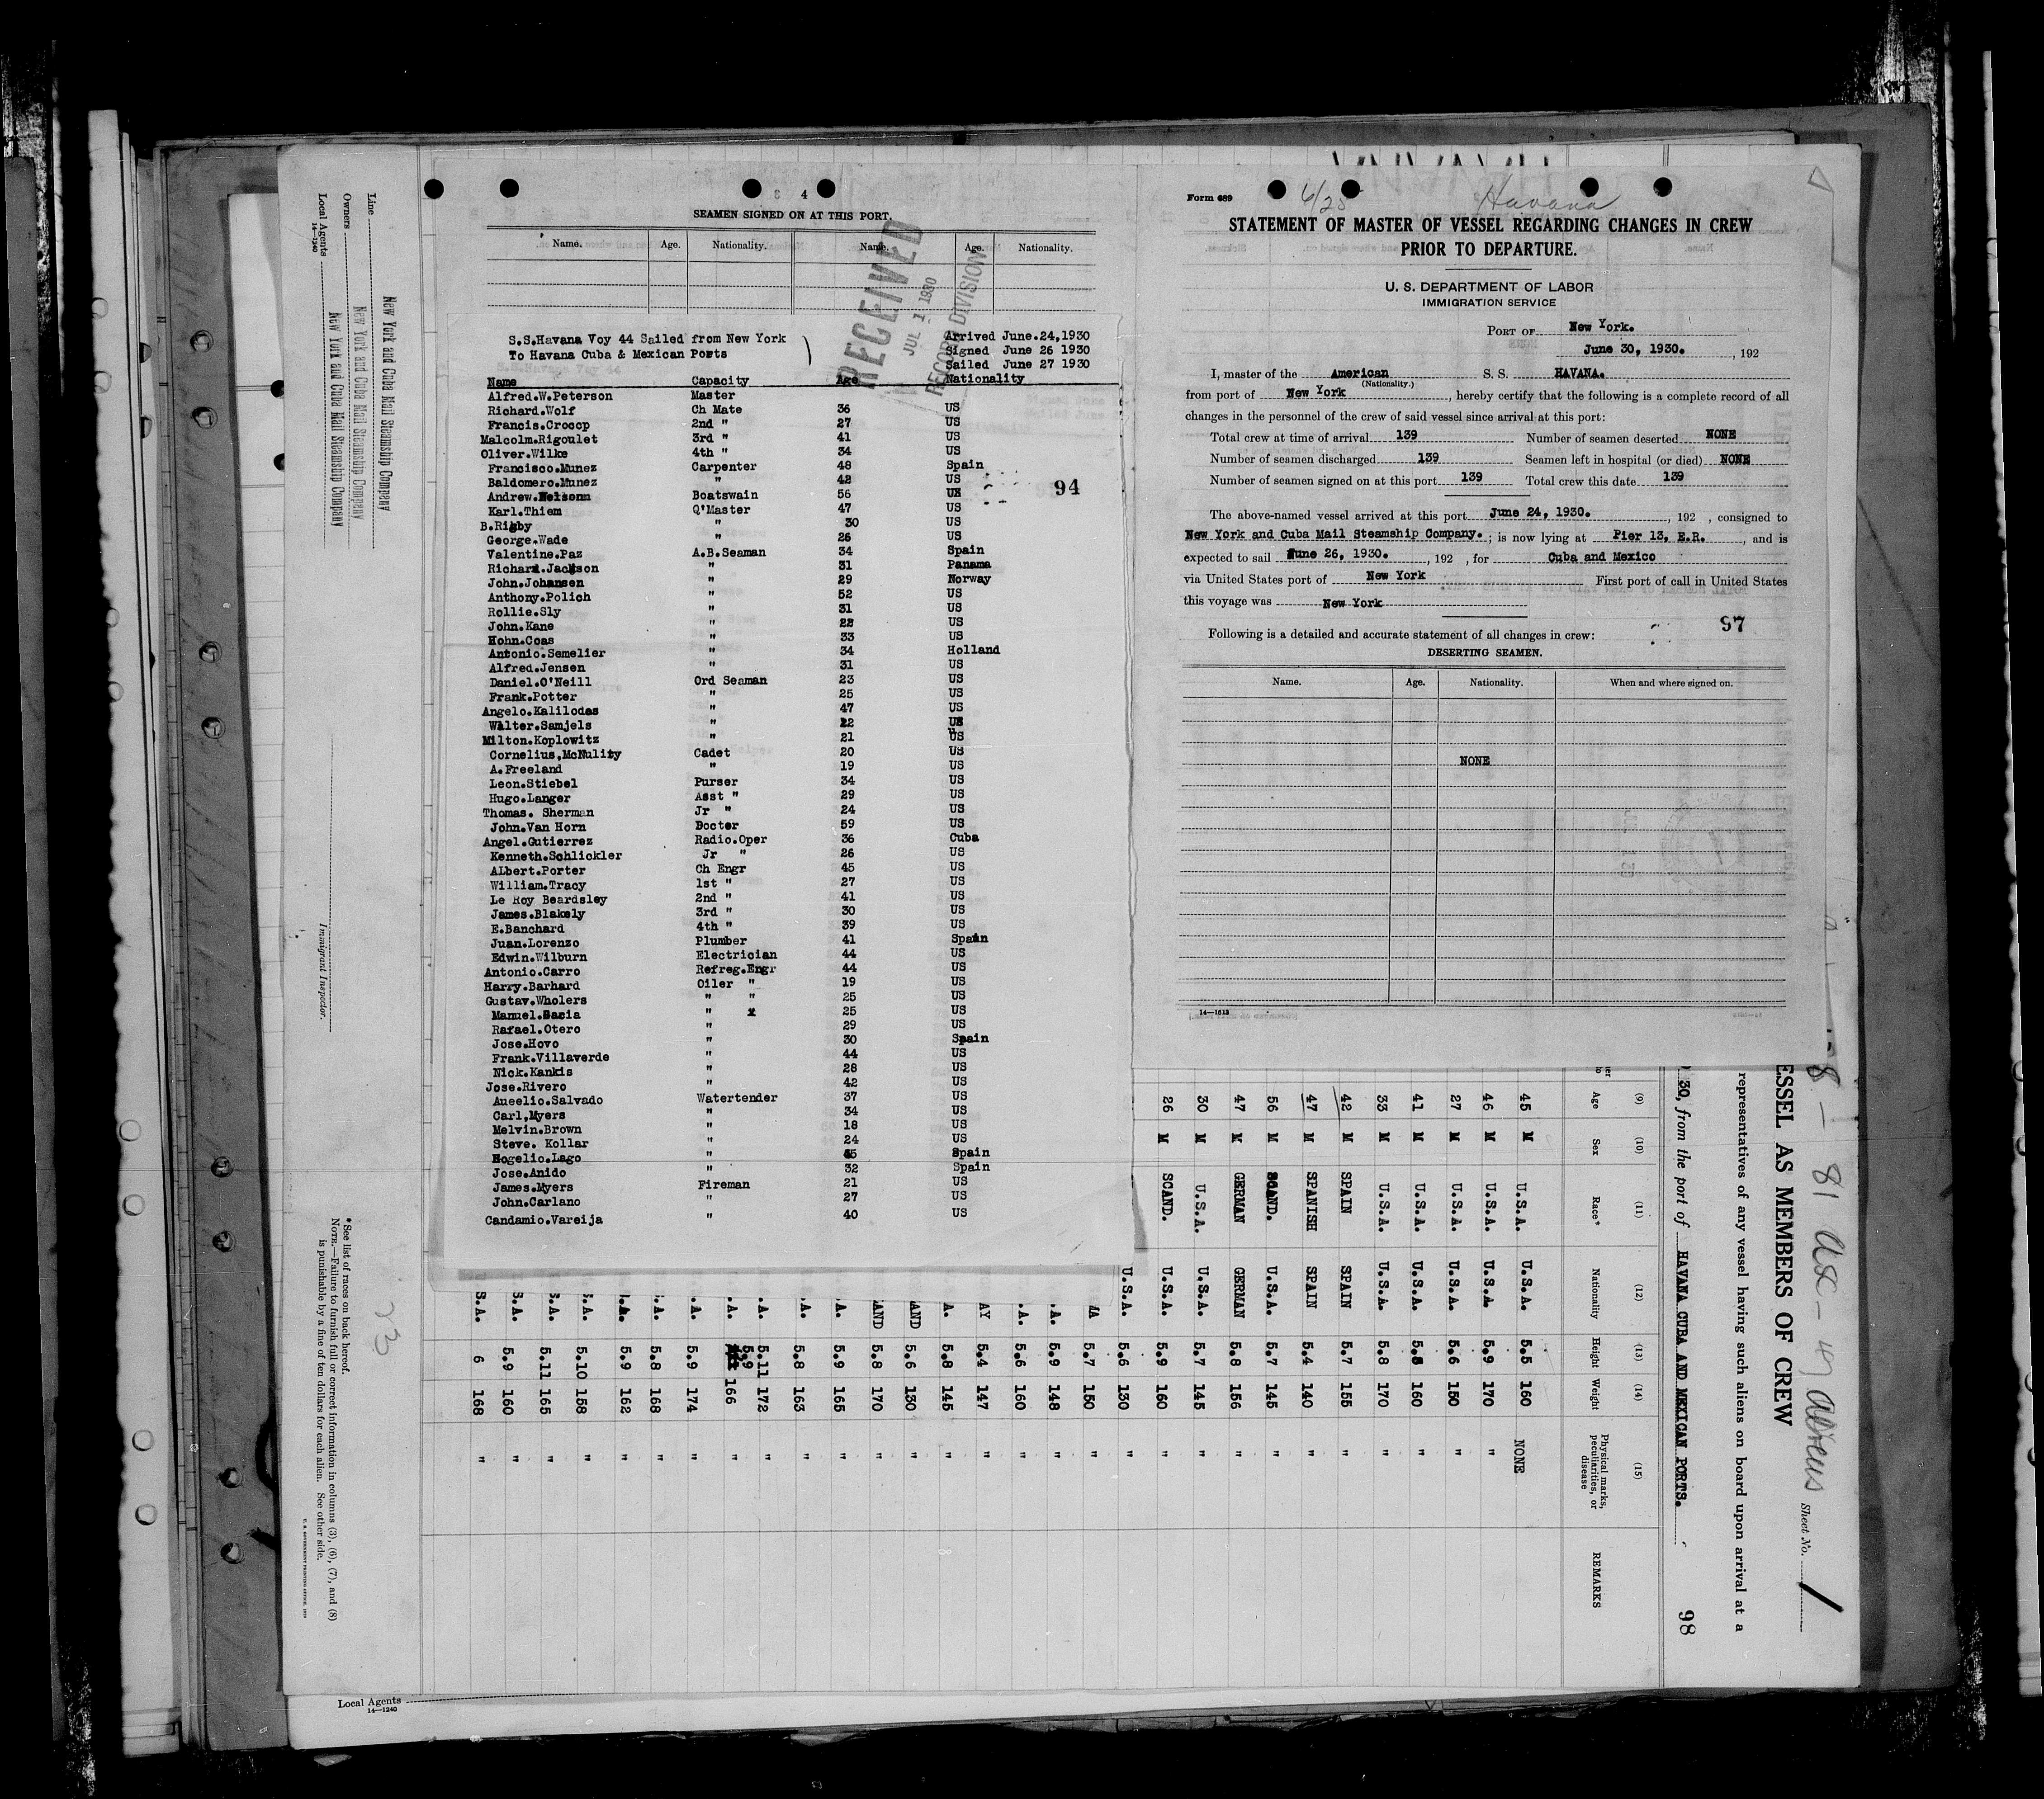 4
SEAMEN SIGNED ON AT THIS PORT.
Name. Age. Nationality. Name. Age. Nationality.
RECEIVED
JUL 1 1930
RECORD DIVISION
S.S.Havana Voy 44 Sailed from New York
To Havana Cuba & Mexican Ports
Arrived June.24,1930
Signed June 26 1930
Sailed June 27 1930
Name Capacity Age Nationality
Alfred.W.Peterson Master
Richard.Wolf Ch Mate 36 US
Francis.Croccp 2nd " 27 US
Malcolm.Rigoulet 3rd " 41 US
Oliver.Wilke 4th " 34 US
Francisco.Munez Carpenter 48 Spain
Baldomero.Munez " 42 US
Andrew.Nelsonn Boatswain 56 US
Karl.Thiem Q'Master 47 US
B.Rigby " 30 US
George.Wade " 26 US
Valentine.Paz A.B.Seaman 34 Spain
Richard.Jackson " 31 Panama
John.Johansen " 29 Norway
Anthony.Polich " 52 US
Rollie.Sly " 31 US
John.Kane " 22 US
Hohn.Coas " 33 US
Antonio.Semelier " 34 Holland
Alfred.Jensen " 31 US
Daniel.O'Neill Ord Seaman 23 US
Frank.Potter " 25 US
Angelo.Kalilodas " 47 US
Walter.Samjels " 22 US
Milton.Koplowitz " 21 US
Cornelius,McNulity Cadet 20 US
A.Freeland " 19 US
Leon.Stiebel Purser 34 US
Hugo.Langer Asst " 29 US
Thomas. Sherman Jr " 24 US
John.Van Horn Doctor 59 US
Angel.Gutierrez Radio.Oper 36 Cuba
Kenneth.Schlickler Jr " 26 US
ALbert.Porter Ch Engr 45 US
William.Tracy 1st " 27 US
Le Roy Beardsley 2nd " 41 US
James.Blakely 3rd " 30 US
E.Banchard 4th " 39 US
Juan.Lorenzo Plumber 41 Spain
Edwin.Wilburn Electrician 44 US
Antonio.Carro Refreg.Engr 44 US
Harry.Barhard Oiler " 19 US
Gustav.Wholers " " 25 US
Manuel.Sacia " 25 US
Rafael.Otero " 29 US
Jose.Hovo " 30 Spain
Frank.Villaverde " 44 US
Nick.Kankis " 28 US
Jose.Rivero " 42 US
Aueelio.Salvado Watertender 37 US
Carl,Myers " 34 US
Melvin.Brown " 18 US
Steve. Kollar " 24 US
Rogelio.Lago " 45 Spain
Jose.Anido " 32 Spain
James.Myers Fireman 21 US
John.Carlano " 27 US
Candamio.Vareija " 40 US
94
Form 689
6/25 Havana
STATEMENT OF MASTER OF VESSEL REGARDING CHANGES IN CREW
PRIOR TO DEPARTURE.
U. S. DEPARTMENT OF LABOR
IMMIGRATION SERVICE
PORT OF New York.
June 30, 1930. , 192
I, master of the American S. S. HAVANA.
(Nationality.)
from port of New York , hereby certify that the following is a complete record of all
changes in the personnel of the crew of said vessel since arrival at this port:
Total crew at time of arrival 139 Number of seamen deserted NONE
Number of seamen discharged 139 Seamen left in hospital (or died) NONE
Number of seamen signed on at this port 139 Total crew this date 139
The above-named vessel arrived at this port June 24, 1930. , 192 , consigned to
New York and Cuba Mail Steamship Company. ; is now lying at Pier 13, E.R. , and is
expected to sail June 26, 1930. , 192 , for Cuba and Mexico
via United States port of New York First port of call in United States
this voyage was New York
97
Following is a detailed and accurate statement of all changes in crew:
DESERTING SEAMEN.
Name. Age. Nationality. When and where signed on.
NONE
14—1613
Line New York and Cuba Mail Steamship Company
Owners New York and Cuba Mail Steamship Company
Local Agents New York and Cuba Mail Steamship Company
14—1240
Immigrant Inspector.
*See list of races on back hereof.
NOTE.—Failure to furnish full or correct information in columns (3), (6), (7), and (8)
is punishable by a fine of ten dollars for each alien. See other side.
U. S. GOVERNMENT PRINTING OFFICE: 1929
23
81 USC - 49 Aliens
Sheet No. 1
ESSEL AS MEMBERS OF CREW
representatives of any vessel having such aliens on board upon arrival at a
30, from the port of HAVANA CUBA AND MEXICAN PORTS.
98
(9) (10) (11) (12) (13) (14) (15)
Age Sex Race* Nationality Height Weight Physical marks, peculiarities, or disease REMARKS
45 M U.S.A. U.S.A. 5.5 160 NONE
46 M U.S.A. U.S.A 5.9 170 "
27 M U.S.A. U.S.A. 5.6 150 "
41 M U.S.A. U.S.A. 5.8 160 "
33 M U.S.A. U.S.A. 5.8 170 "
42 M SPAIN SPAIN 5.7 155 "
47 M SPANISH SPAIN 5.4 140 "
56 M SCAND. U.S.A. 5.7 145 "
47 M GERMAN GERMAN 5.8 156 "
30 M U.S.A. U.S.A. 5.7 145 "
26 M SCAND. U.S.A. 5.9 160 "
U.S.A. 5.6 130 "
MA 5.7 150 "
.A. 5.9 148 "
.A. 5.6 160 "
AY 5.4 147 "
A. 5.8 145 "
AND 5.6 130 "
AND 5.8 170 "
A. 5.9 165 "
.A. 5.8 163 "
.A. 5.11 172 "
.A. 5.9 166 "
.A. 5.9 174 "
.A. 5.8 168 "
.A. 5.9 162 "
S.A. 5.10 158 "
S.A. 5.11 165 "
S.A. 5.9 160 "
S.A. 6 168 "
Local Agents
14—1240